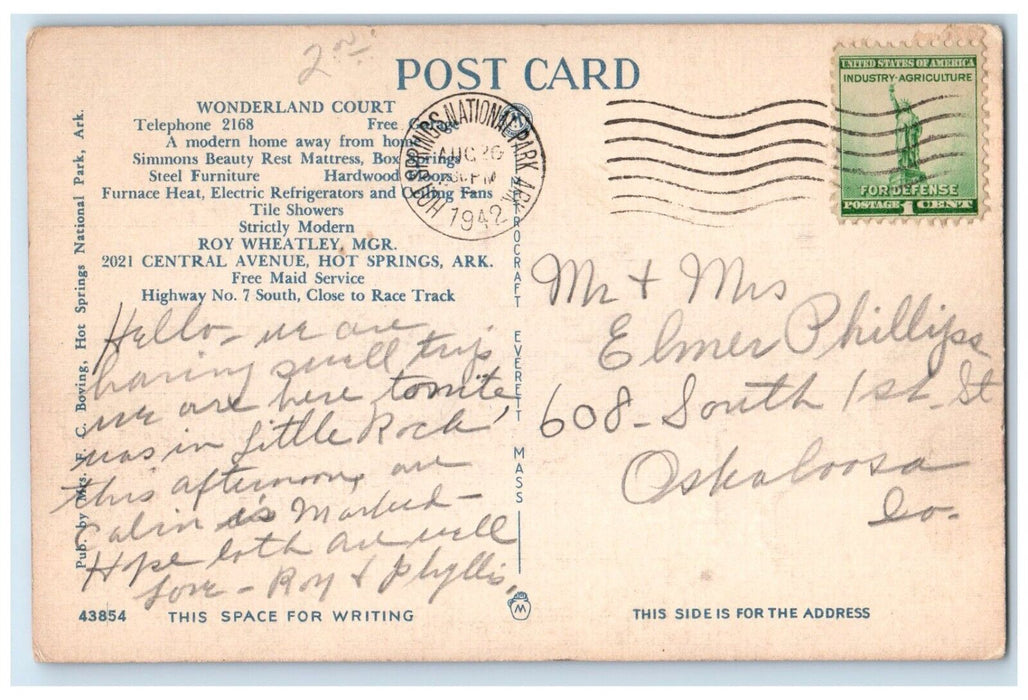 2
POST CARD
WONDERLAND COURT
Telephone 2168 Free
A modern home away from home
Simmons Beauty Rest Mattress, Box Springs
Steel Furniture Hardwood Floors
Furnace Heat, Electric Refrigerators and Cooling Fans
Tile Showers
Strictly Modern
ROY WHEATLEY, MGR.
2021 CENTRAL AVENUE, HOT SPRINGS, ARK.
Free Maid Service
Highway No. 7 South, Close to Race Track
Pub. by Mrs. F. C. Boving, Hot Springs National Park, Ark.
Hello - we are
having swell trip
we are here tonite
was in Little Rock
this afternoon, our
Cabin is Marked -
Hope both are well
Love - Roy & Phyllis
43854 THIS SPACE FOR WRITING
HOT SPRINGS NATIONAL PARK, ARK.
AUG 20
PM
1942
EVERETT MASS
M
UNITED STATES OF AMERICA
INDUSTRY-AGRICULTURE
FOR DEFENSE
POSTAGE 1 CENT
Mr + Mrs
Elmer Phillips
608 - South 1st - St
Oskaloosa
Io-
THIS SIDE IS FOR THE ADDRESS